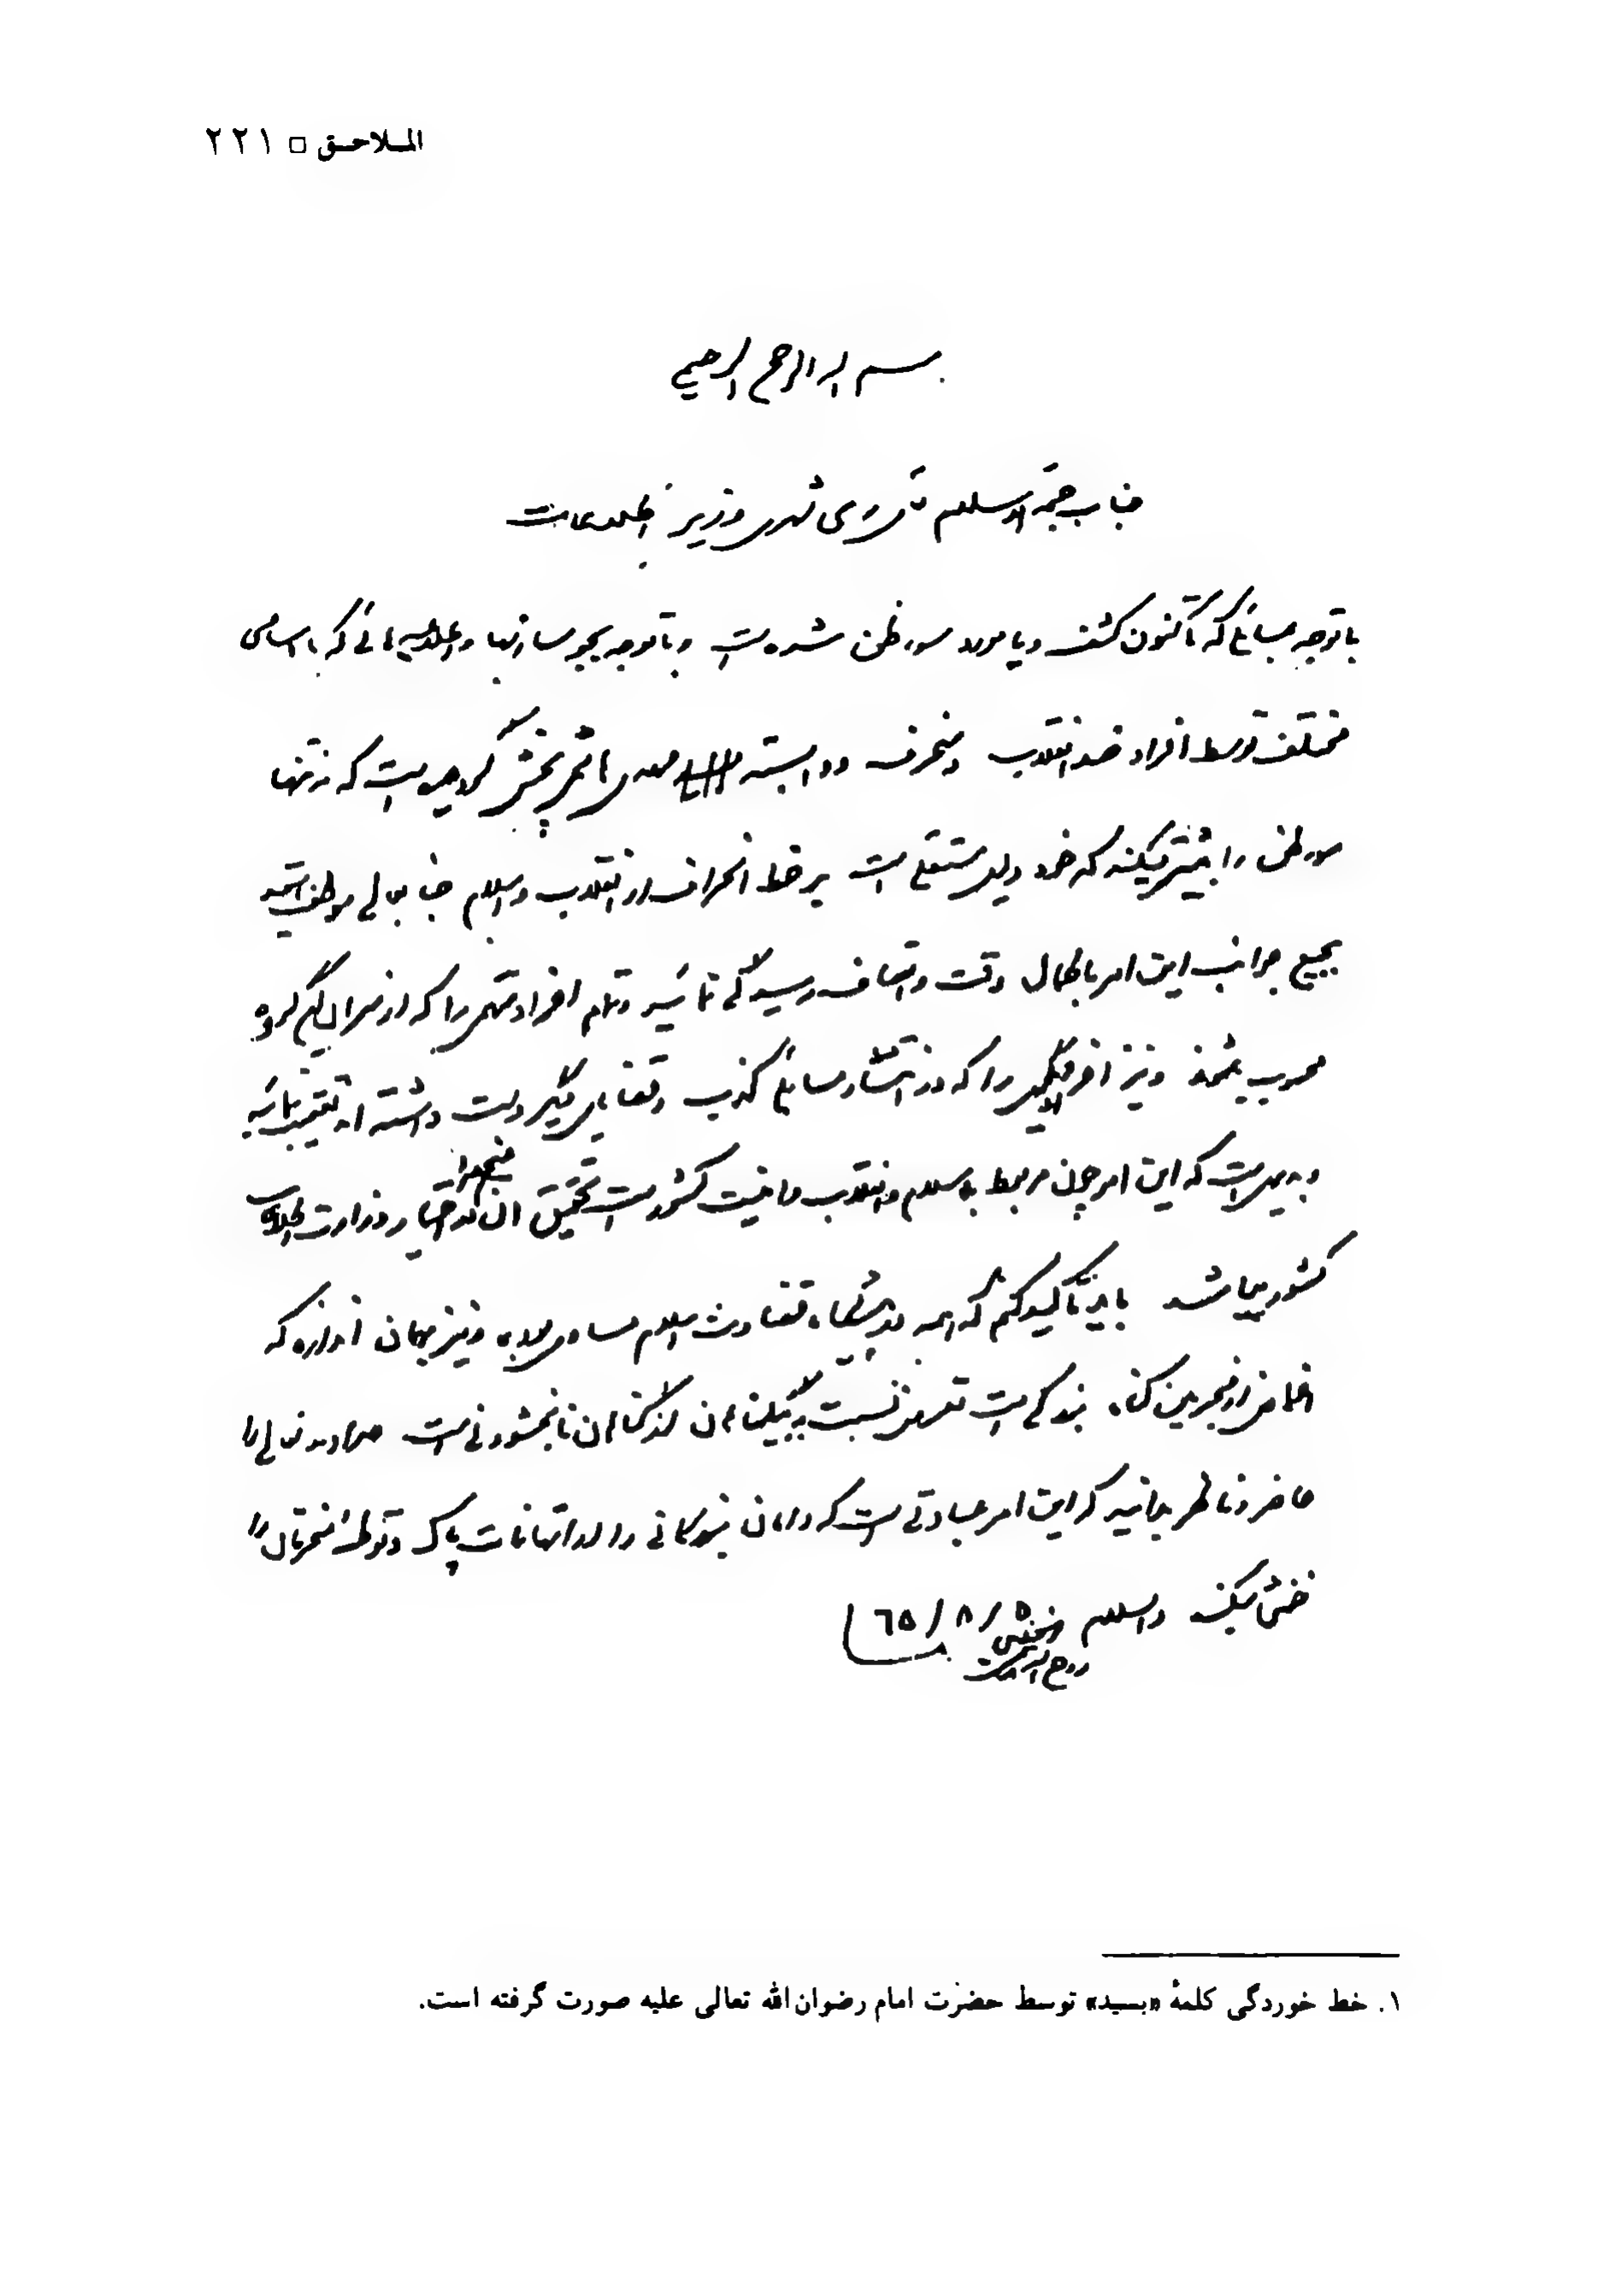 الملاحق □ ٢٢١
بسم الله الرحمن الرحيم
جناب حجة الاسلام آقای ری شهری وزیر اطلاعات
با توجه بمسائلی که تاکنون کشف و یا مورد سوء ظن شده است و با توجه بجو سازیها و اعلامیه هائی که با اسامی
مختلف توسط افراد ضد انقلاب و منحرف و وابسته پخش گردیده است که نه تنها
سوء ظن را بیشتر میکند که خود دلیل مستقلی است بر خط انحراف از انقلاب و اسلام جنابعالی موظف هستید
بجمیع جوانب این امر با کمال دقت و انصاف رسیدگی نمائید و تمام افراد متهم را که از سران این گروه
محسوب میشوند و نیز افراد دیگری را که در انتشار مسائل کذب و قضایای دیگر دست داشته اند تعقیب نمائید
بدیهی است که این امر چون مربوط به اسلام و انقلاب و امنیت کشور است تحقیق آن منحصرا در اختیار وزارت اطلاعات
کشور میباشد باید تأکید کنم که همه در پیشگاه قضاوت اسلام مساوی بوده و نیز بهمان اندازه که
اغماض از مجرمین گناه بزرگی است تعرض نسبت به بیگناهان از گناهان نابخشودنی است خداوند تعالی را
حاضر و ناظر بدانید که این امر عبادتی است که دامان بزرگانی را از اتهامات پاک و توطئه منحرفان را
خنثی میکند والسلام ٥/٨/٦٥
روح الله الموسوی الخمینی
١. خط خوردگی کلمهٔ «بسید» توسط حضرت امام رضوان الله تعالی علیه صورت گرفته است.